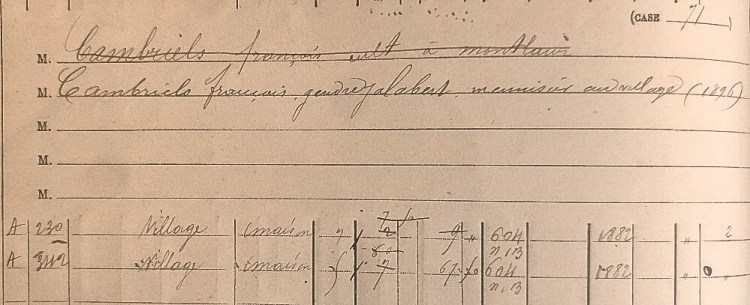 (CASE 71)
M. Cambriels françois cult à montlaur
M. Cambriels françois gendre Jalabert menuisier au village (1896)
M.
M.
M.
A 230 Village maison 7 9 " 604 1882 " 2
n. 13
A 342 Village maison 7 67 604 1882 "
n. 13